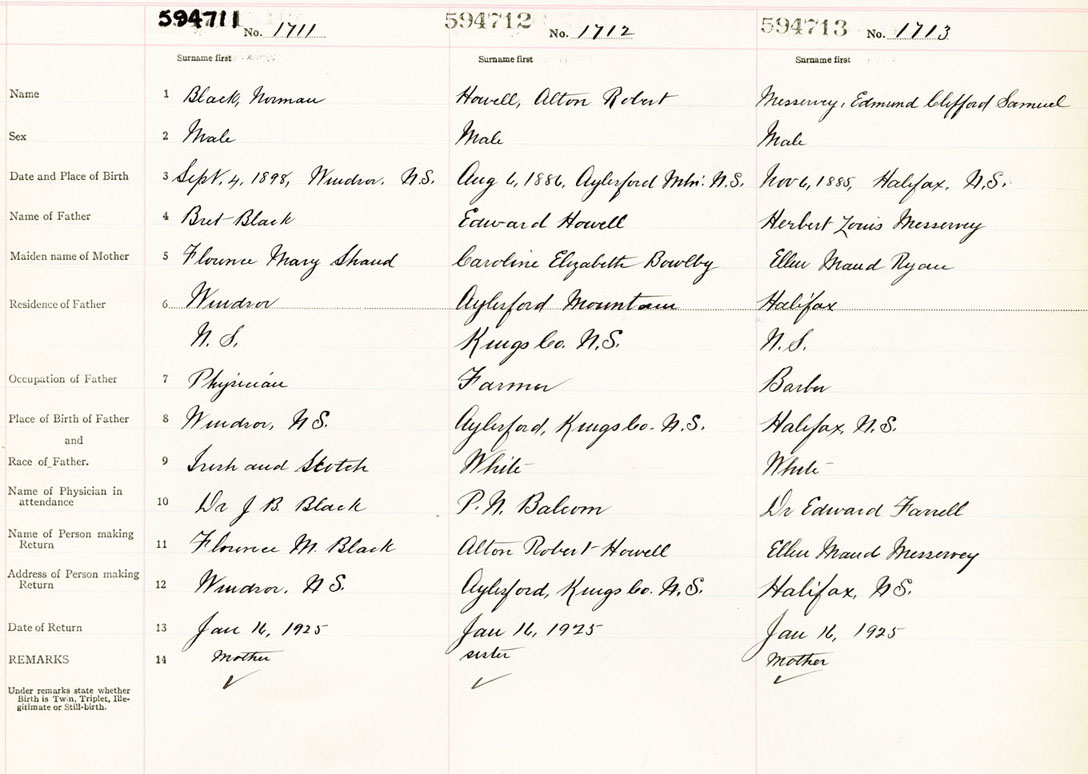 594711 No. 1711 594712 No. 1712 594713 No. 1713
Surname first Surname first Surname first
Name 1 Black, Norman Howell, Alton Robert Messervey, Edmund Clifford Samuel
Sex 2 Male Male Male
Date and Place of Birth 3 Sept. 4, 1898, Windsor. N.S. Aug 6, 1886, Aylesford Mtn. N.S. Nov 6, 1885, Halifax, N.S.
Name of Father 4 Bret Black Edward Howell Herbert Louis Messervey
Maiden name of Mother 5 Florence Mary Shand Caroline Elizabeth Bowlby Ellen Maud Ryan
Residence of Father 6 Windsor Aylesford Mountain Halifax
N. S. Kings Co. N.S. N.S.
Occupation of Father 7 Physician Farmer Barber
Place of Birth of Father 8 Windsor, N.S. Aylesford, Kings Co. N.S. Halifax, N.S.
and
Race of Father. 9 Irish and Scotch White White
Name of Physician in
attendance 10 Dr J B. Black P. N. Balcom Dr Edward Farrell
Name of Person making
Return 11 Florence M. Black Alton Robert Howell Ellen Maud Messervey
Address of Person making
Return 12 Windsor. N.S. Aylesford, Kings Co. N.S. Halifax, N.S.
Date of Return 13 Jan 16, 1925 Jan 16, 1925 Jan 16, 1925
REMARKS 14 Mother sister Mother
Under remarks state whether
Birth is Twin, Triplet, Ille-
gitimate or Still-birth.